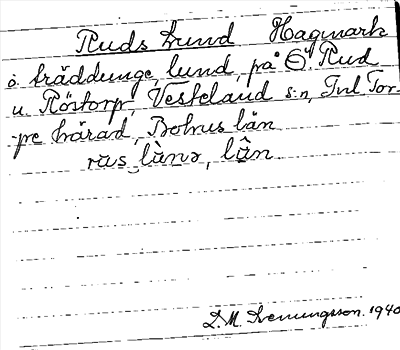 Ruds Lund Hagmark
o. träddunge, lund, på Ö. Rud
u. Röstorp, Vesteland s:n, Inl Tor-
-pe härad, Bohus län
lànə, lûn
D. M. Svenungsson. 1940